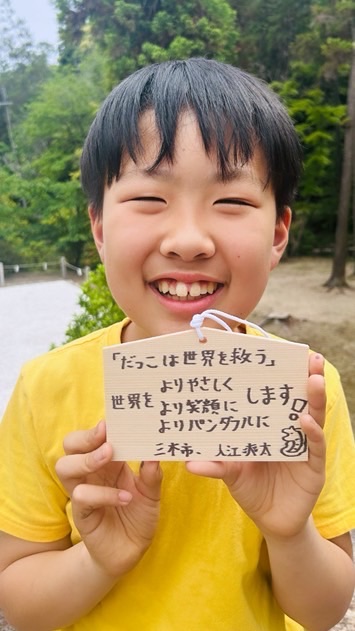 「だっこは世界を救う」
よりやさしく
世界を より笑顔に します!
よりパンダフルに
三木市、入江恭太